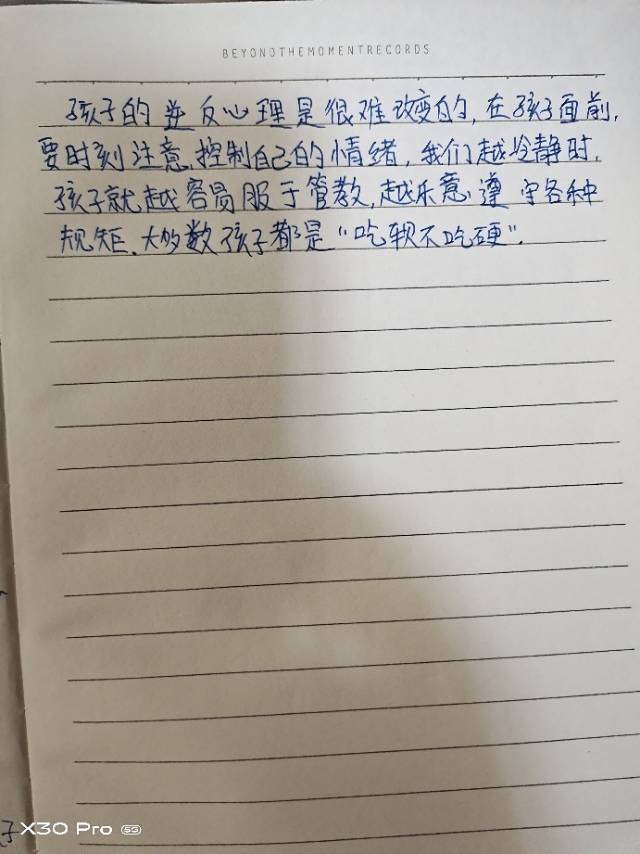 BEYONDTHEMOMENTRECORDS
孩子的逆反心理是很难改变的,在孩子面前,
要时刻注意,控制自己的情绪,我们越冷静时,
孩子就越容易服于管教,越乐意遵守各种
规矩、大多数孩子都是“吃软不吃硬”.
子
X30 Pro 5G